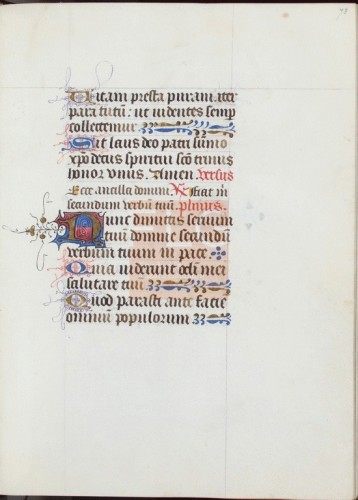 Uitam presta puram iter
para tutū: ut uidentes semp
collectemur
Sit laus deo patri summo
xpo decus spiritui scō trinus
honor vnus. Amen. Versus
Ecce ancilla domini. R Fiat m
secundum verbū tuū. psalmꝰ.
Nunc dimittis seruum
tuū domine secundū
verbum tuum in pace
Quia uiderunt oculi mei
salutare tuū
Quod parasti ante facie
omnium populorum